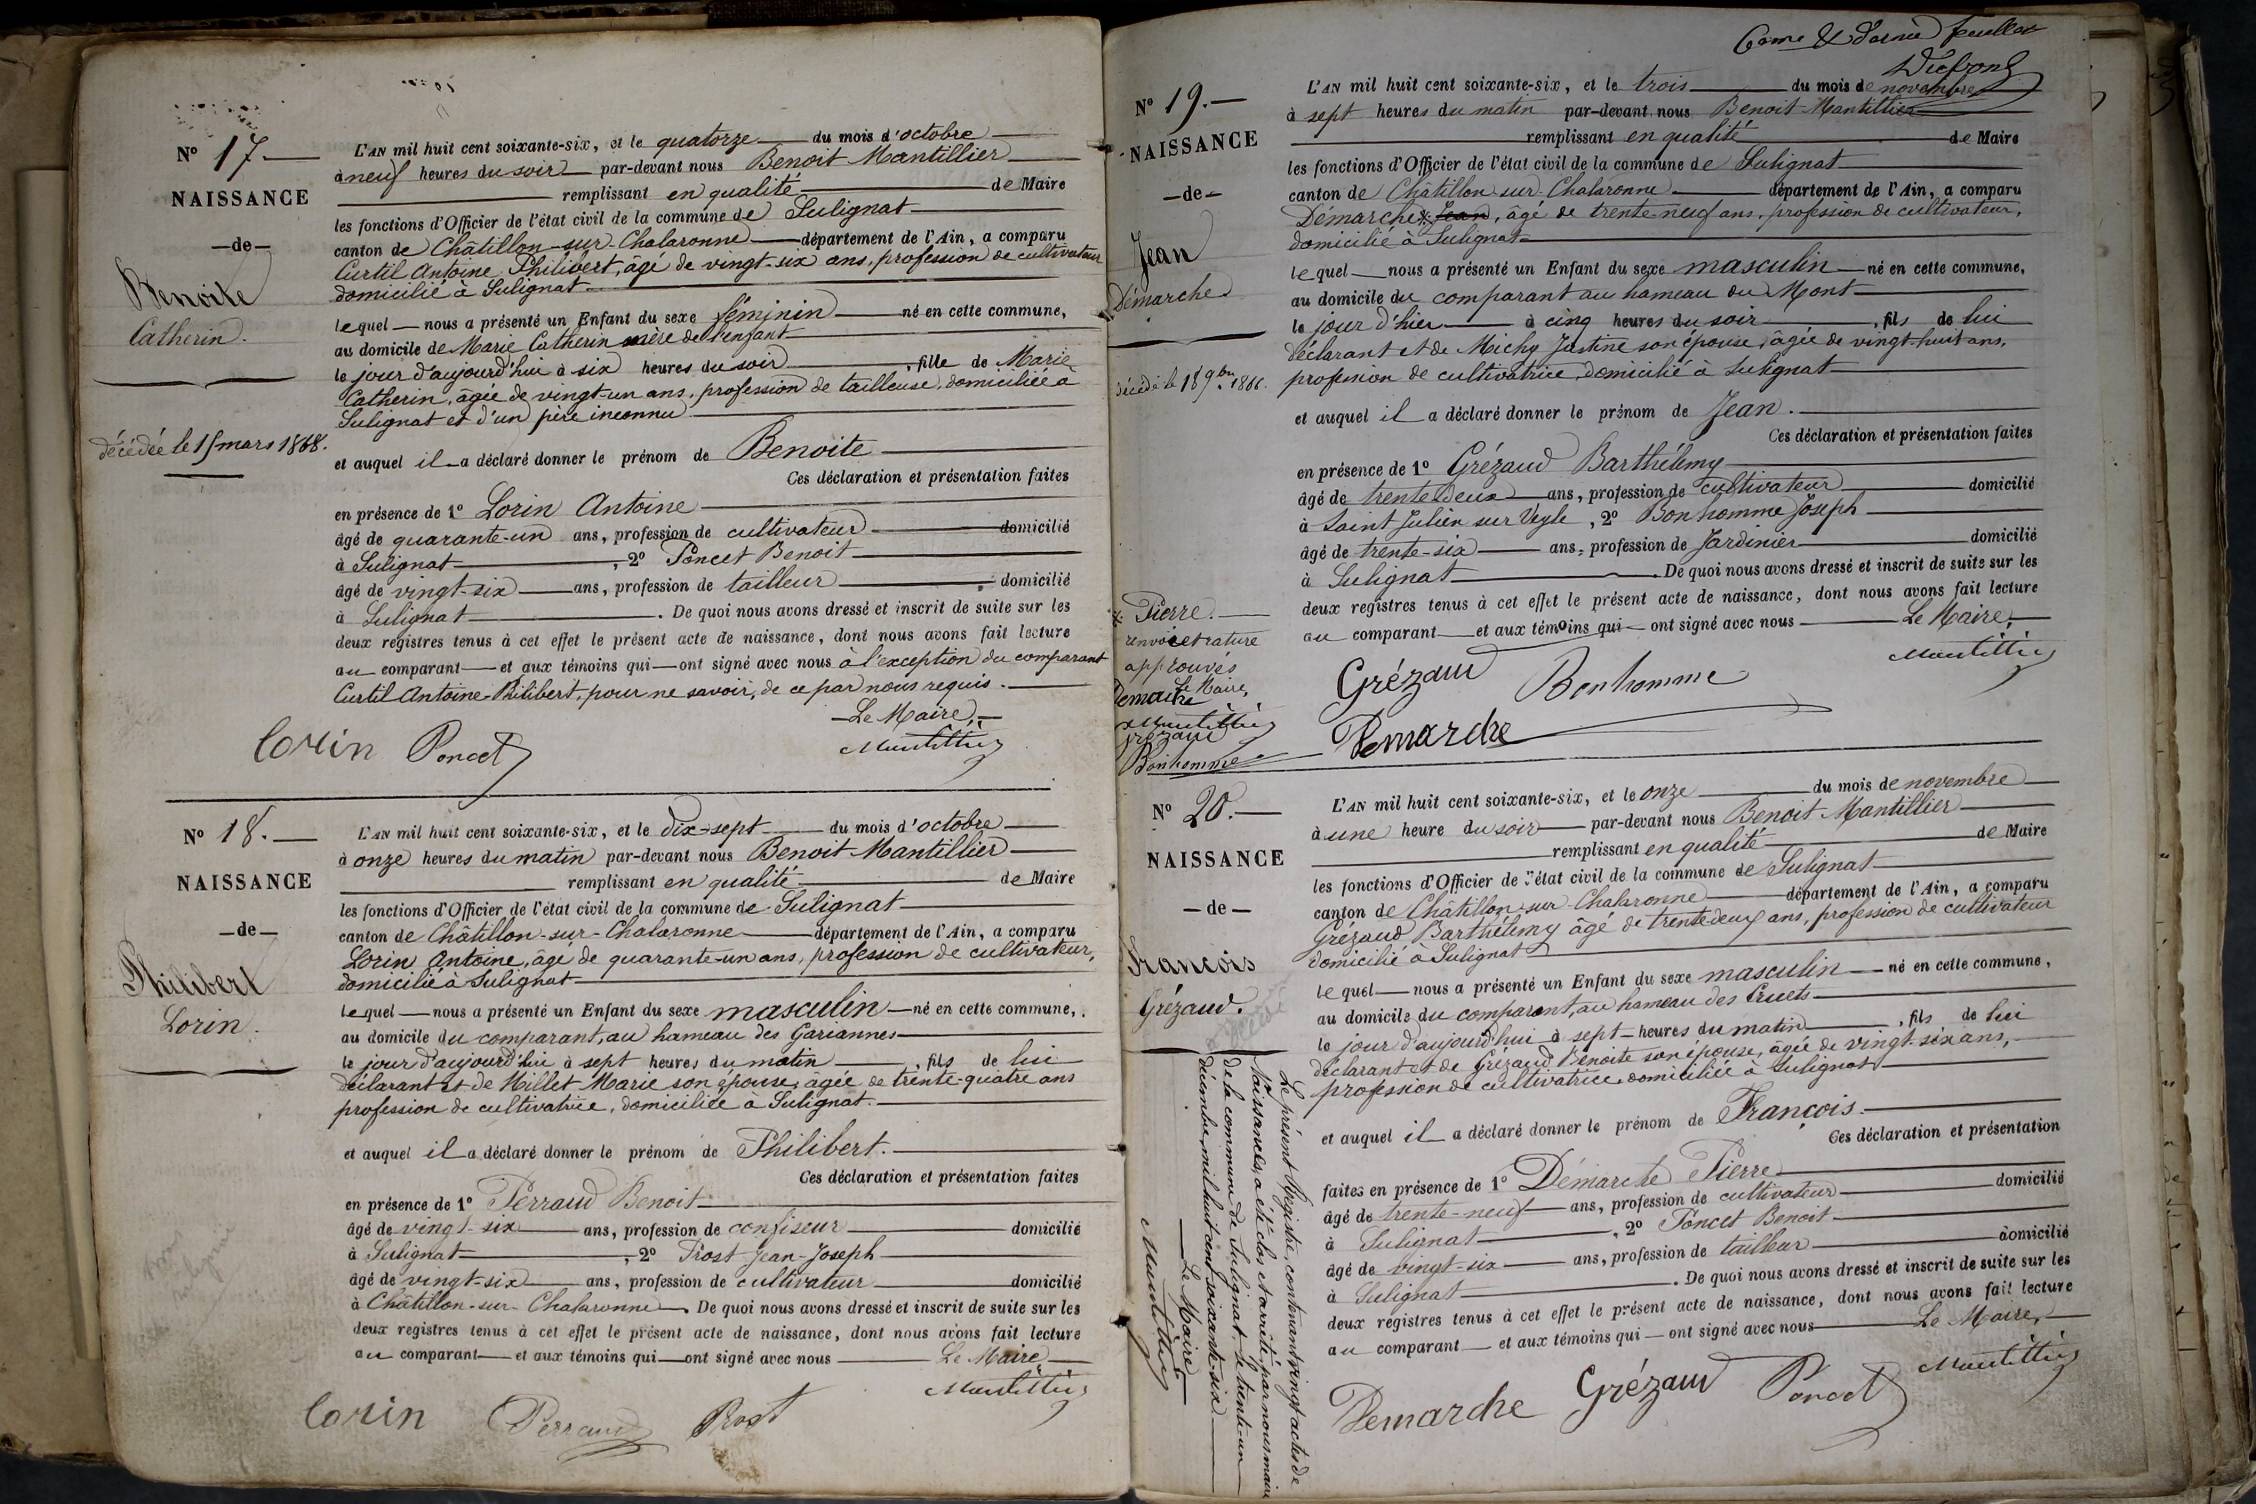 N° 17.
NAISSANCE
de
Benoite
Catherin.
décédée le 15 mars 1868.
L'AN mil huit cent soixante-six, et le quatorze du mois d'octobre
à neuf heures du soir par-devant nous Benoit Mantillier
remplissant en qualité de Maire
les fonctions d'Officier de l'état civil de la commune de Sulignat
canton de Châtillon-sur-Chalaronne département de l'Ain, a comparu
Curtil Antoine Philibert, âgé de vingt-six ans, profession de cultivateur
domicilié à Sulignat
lequel nous a présenté un Enfant du sexe féminin né en cette commune,
au domicile de Marie Catherin mère de l'enfant
le jour d'aujourd'hui à six heures du soir, fille de Marie
Catherin, âgée de vingt-un ans, profession de tailleuse, domiciliée à
Sulignat et d'un père inconnu
et auquel il a déclaré donner le prénom de Benoite
Ces déclaration et présentation faites
en présence de 1° Lorin Antoine
âgé de quarante-un ans, profession de cultivateur domicilié
à Sulignat, 2° Poncet Benoit
âgé de vingt-six ans, profession de tailleur domicilié
à Sulignat. De quoi nous avons dressé et inscrit de suite sur les
deux registres tenus à cet effet le présent acte de naissance, dont nous avons fait lecture
au comparant et aux témoins qui ont signé avec nous à l'exception du comparant
Curtil Antoine-Philibert, pour ne savoir, de ce par nous requis.
Le Maire,
Lorin Poncet Mantillier
N° 18.
NAISSANCE
de
Philibert
Lorin.
L'AN mil huit cent soixante-six, et le dix-sept du mois d'octobre
à onze heures du matin par-devant nous Benoit Mantillier
remplissant en qualité de Maire
les fonctions d'Officier de l'état civil de la commune de Sulignat
canton de Châtillon-sur-Chalaronne département de l'Ain, a comparu
Lorin Antoine, âgé de quarante-un ans, profession de cultivateur,
domicilié à Sulignat
lequel nous a présenté un Enfant du sexe masculin né en cette commune,
au domicile du comparant, au hameau des Gariannes
le jour d'aujourd'hui à sept heures du matin, fils de lui
déclarant et de Millet Marie son épouse, âgée de trente-quatre ans
profession de cultivatrice, domiciliée à Sulignat.
et auquel il a déclaré donner le prénom de Philibert.
Ces déclaration et présentation faites
en présence de 1° Perraud Benoit
âgé de vingt-six ans, profession de confiseur domicilié
à Sulignat, 2° Prost Jean-Joseph
âgé de vingt-six ans, profession de cultivateur domicilié
à Châtillon-sur-Chalaronne. De quoi nous avons dressé et inscrit de suite sur les
deux registres tenus à cet effet le présent acte de naissance, dont nous avons fait lecture
au comparant et aux témoins qui ont signé avec nous Le Maire
Mantillier
Lorin Perraud Prost
6ème & dernier feuillet
N° 19.
NAISSANCE
de
Jean
Démarche
décédé le 18 9bre 1866.
L'AN mil huit cent soixante-six, et le trois du mois de novembre
à sept heures du matin par-devant nous Benoit Mantillier
remplissant en qualité de Maire
les fonctions d'Officier de l'état civil de la commune de Sulignat
canton de Châtillon sur Chalaronne département de l'Ain, a comparu
Démarche * Jean, âgé de trente-neuf ans, profession de cultivateur,
domicilié à Sulignat
lequel nous a présenté un Enfant du sexe masculin né en cette commune,
au domicile du comparant au hameau du Mont
le jour d'hier à cinq heures du soir, fils de lui
déclarant et de Michy Justine son épouse, âgée de vingt-huit ans,
profession de cultivatrice, domicilié à Sulignat
et auquel il a déclaré donner le prénom de Jean.
Ces déclaration et présentation faites
en présence de 1° Grézaud Barthélemy
âgé de trente-deux ans, profession de cultivateur domicilié
à Saint Julien sur Veyle, 2° Bonhomme Joseph
âgé de trente-six ans, profession de Jardinier domicilié
à Sulignat. De quoi nous avons dressé et inscrit de suite sur les
deux registres tenus à cet effet le présent acte de naissance, dont nous avons fait lecture
au comparant et aux témoins qui ont signé avec nous Le Maire,
Mantillier
Grézaud Bonhomme
Demarche
* Pierre.
renvoi et rature
approuvés
Le Maire,
Demarche
Mantillier
Grézaud
Bonhomme
N° 20.
NAISSANCE
de
François
Grézaud.
L'AN mil huit cent soixante-six, et le onze du mois de novembre
à une heure du soir par-devant nous Benoit Mantillier
remplissant en qualité de Maire
les fonctions d'Officier de l'état civil de la commune de Sulignat
canton de Châtillon sur Chalaronne département de l'Ain, a comparu
Grézaud Barthélemy âgé de trente-deux ans, profession de cultivateur
domicilié à Sulignat
lequel nous a présenté un Enfant du sexe masculin né en cette commune,
au domicile du comparant, au hameau des Cruets
le jour d'aujourd'hui à sept heures du matin, fils de lui
déclarant et de Grézaud Benoite son épouse, âgée de vingt-six ans,
profession de cultivatrice, domiciliée à Sulignat
et auquel il a déclaré donner le prénom de François.
Ces déclaration et présentation
faites en présence de 1° Démarche Pierre
âgé de trente-neuf ans, profession de cultivateur domicilié
à Sulignat, 2° Poncet Benoit
âgé de vingt-six ans, profession de tailleur domicilié
à Sulignat. De quoi nous avons dressé et inscrit de suite sur les
deux registres tenus à cet effet le présent acte de naissance, dont nous avons fait lecture
au comparant et aux témoins qui ont signé avec nous Le Maire,
Mantillier
Demarche Grézaud Poncet
Le présent Registre, contenant vingt actes de
Naissances, a été clos et arrêté par nous maire
de la commune de Sulignat, le trente-un
décembre mil huit cent soixante-six
Le Maire
Mantillier